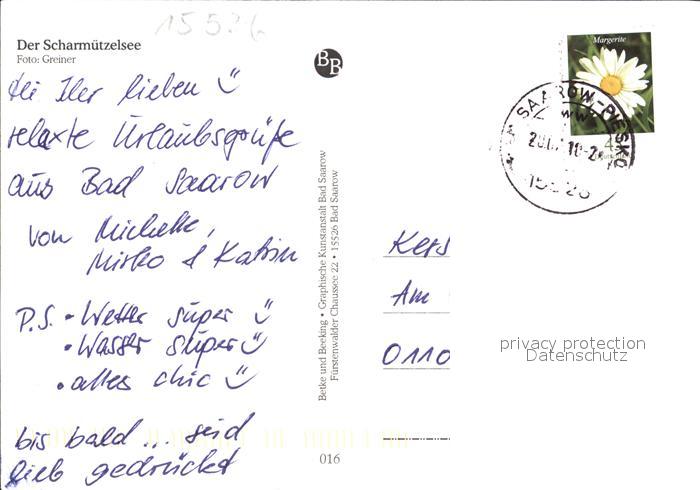 Der Scharmützelsee
Foto: Greiner
BB
Hi Ihr lieben
relaxte Urlaubsgrüße
aus Bad Saarow
von Michelle,
Mirko & Katrin
P.S. • Wetter super
• Wasser super
• alles chic
bis bald ... seid
lieb gedrückt
Betke und Beeking • Graphische Kunstanstalt Bad Saarow
Fürstenwalder Chaussee 22 • 15526 Bad Saarow
016
Margerite
SAAROW-PIESKO
Kers
Am
0110
privacy protection
Datenschutz